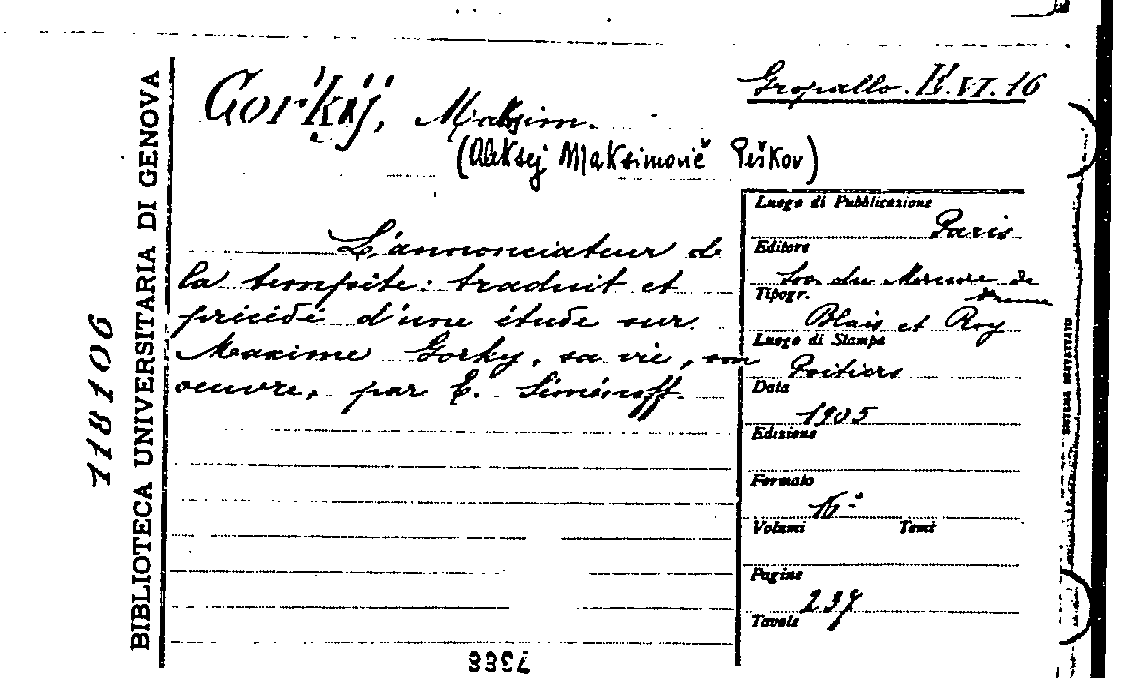 Gropallo. K.VI.16
Gorkij, Maksim.
(Aleksej Maksimovič Peškov)
L'annonciateur de
la tempête: traduit et
précédé d'une étude sur
Maxime Gorky, sa vie, son
oeuvre, par E. Séménoff.
Luogo di Pubblicazione
Paris
Editore
Soc. du Mercure de
France
Tipogr.
Blais et Roy
Luogo di Stampa
Poitiers
Data
1905
Edizione
Formato
16°
Volumi Tomi
Pagine
237
Tavole
BIBLIOTECA UNIVERSITARIA DI GENOVA
118106
7388